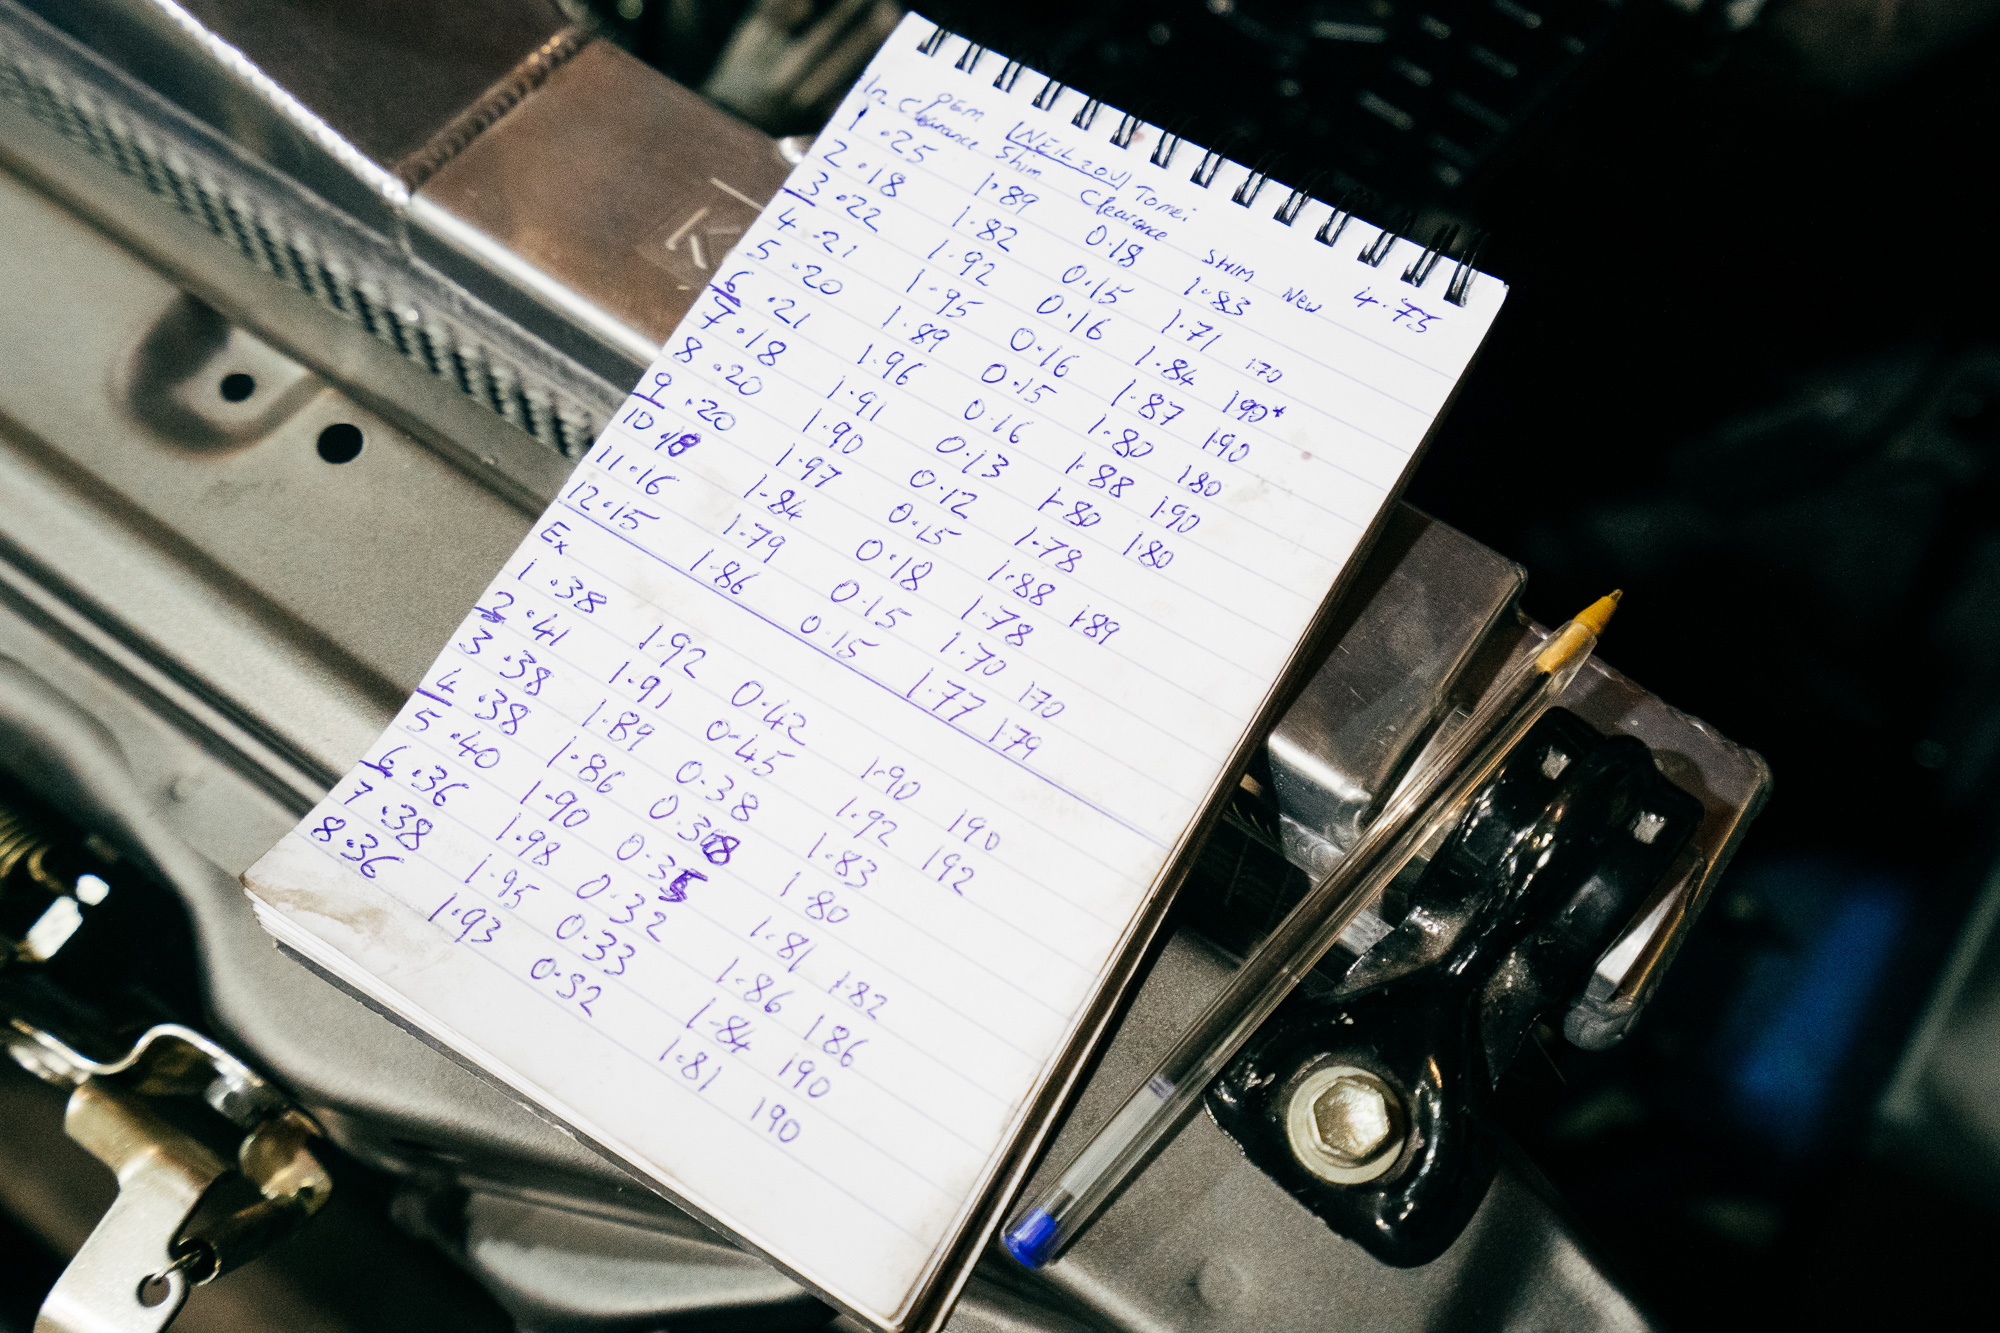 OEM NEIL20U Tomei 4.75
In. Clearance Shim Clearance SHIM New
1 .25 1.89 0.18 1.83
2 .18 1.82 0.15 1.71 170
3 .22 1.92 0.16 1.84 190*
4 .21 1.95 0.16 1.87 190
5 .20 1.89 0.15 1.80 180
6 .21 1.96 0.16 1.88 1.90
7 .18 1.91 0.13 1.80 1.80
8 .20 1.90 0.12 1.78
9 .20 1.97 0.15 1.88 1.89
10 .18 1.84 0.18 1.78
11 .16 1.79 0.15 1.70 170
12 .15 1.86 0.15 1.77 1.79
Ex
1 .38 1.92 0.42 1.90 190
2 .41 1.91 0.45 1.92 192
3 .38 1.89 0.38 1.83
4 .38 1.86 0.38 1.80
5 .40 1.90 0.35 1.81 1.82
6 .36 1.98 0.32 1.86 186
7 .38 1.95 0.33 1.84 190
8 .36 1.93 0.32 1.81 190